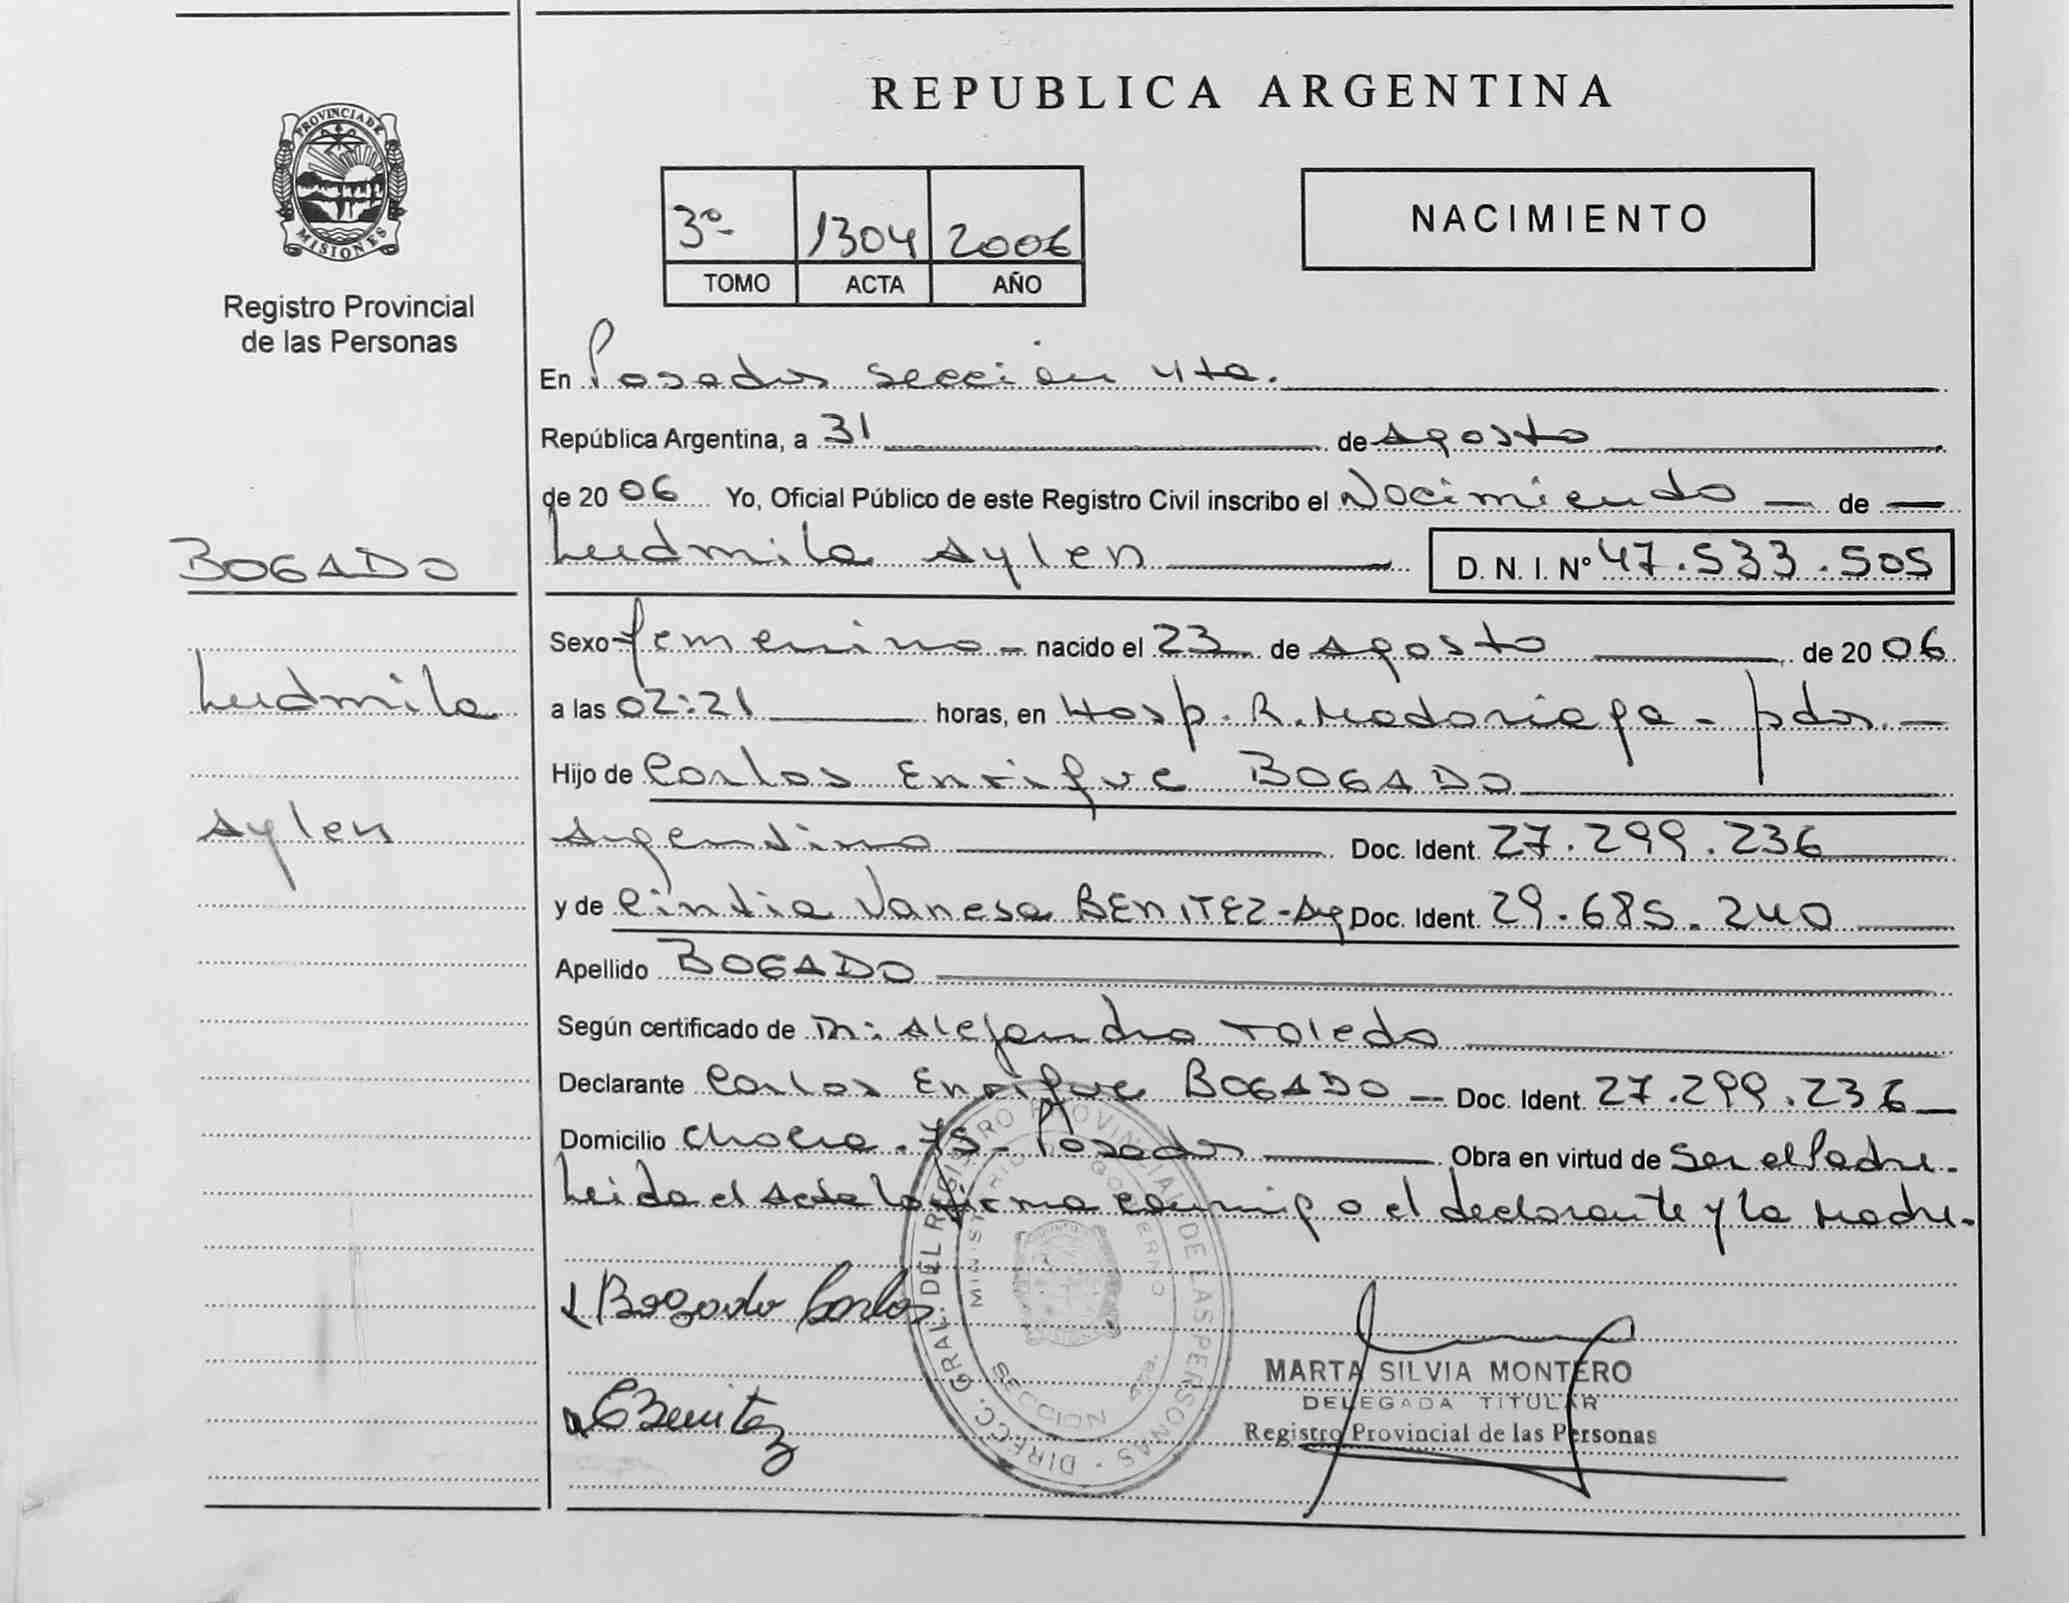 REPUBLICA ARGENTINA
PROVINCIA DE
MISIONES
Registro Provincial
de las Personas
3º 1304 2006
TOMO ACTA AÑO
NACIMIENTO
En Posadas Sección 4ta.
República Argentina, a 31 de Agosto
de 2006 Yo, Oficial Público de este Registro Civil inscribo el Nacimiento de
BOGADO
Ludmila Aylen D. N. I. Nº 47.533.505
Sexo femenino nacido el 23 de Agosto de 2006
Ludmila
a las 02:21 horas, en Hosp. R. Madariaga - Pdas.
Hijo de Carlos Enrique BOGADO
Aylen
Argentino Doc. Ident. 27.299.236
y de Cintia Vanesa BENITEZ - Arg Doc. Ident. 29.685.240
Apellido BOGADO
Según certificado de Alejandro Toledo
Declarante Carlos Enrique BOGADO Doc. Ident. 27.299.236
Domicilio 75 - Posadas Obra en virtud de Ser el Padre.
Leida el Acta la firma conmigo el declarante y la Madre.
Bogado Carlos
CBenitez
DIRECC. GRAL. DEL REGISTRO PROVINCIAL DE LAS PERSONAS
MINISTERIO GOBIERNO
SECCION 4ta.
MARTA SILVIA MONTERO
DELEGADA TITULAR
Registro Provincial de las Personas